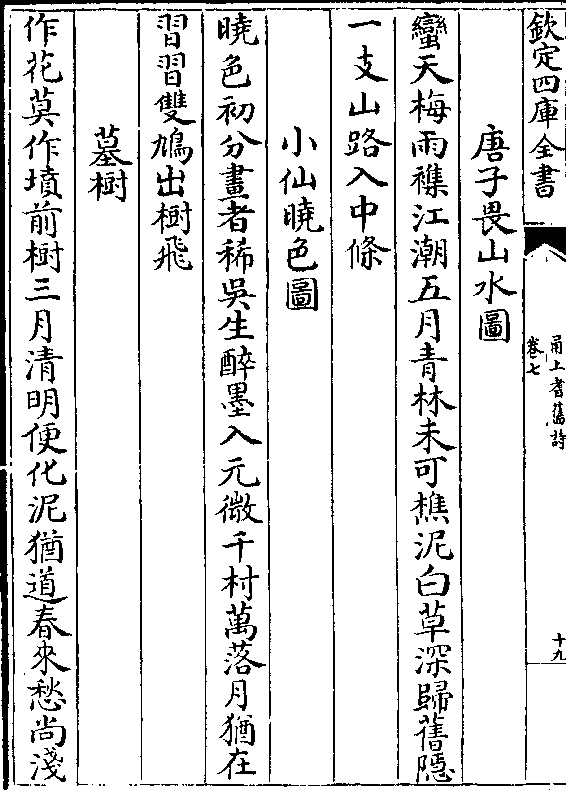 欽定四庫全書
甬上耆舊詩
卷七
十九
唐子畏山水圖
蠻天梅雨襍江潮五月青林未可樵泥白草深歸舊隱
一支山路入中條
小仙曉色圖
曉色初分畫者稀吳生醉墨入元微千村萬落月猶在
習習雙鳩出樹飛
墓樹
作花莫作墳前樹三月清明便化泥猶道春來愁尚淺